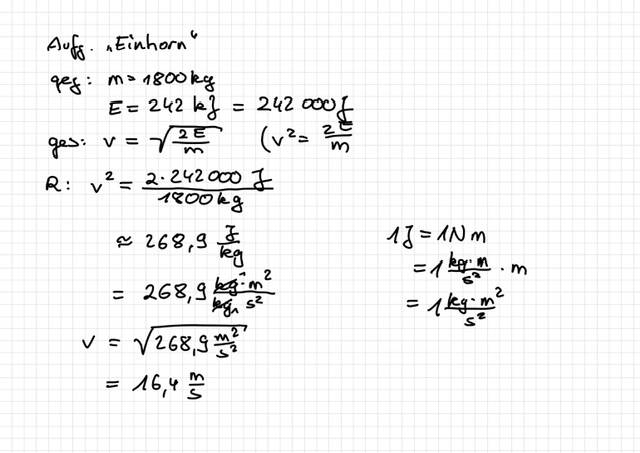 Aufg. „Einhorn“
geg: m = 1800 kg
E = 242 kJ = 242 000 J
ges: v = √(2E/m) (v² = 2E/m
R: v² = 2·242000 J / 1800 kg
≈ 268,9 J/kg
= 268,9 kg·m²/kg s²
v = √(268,9 m²/s²)
= 16,4 m/s
1J = 1Nm
= 1 kg·m/s² · m
= 1 kg·m²/s²